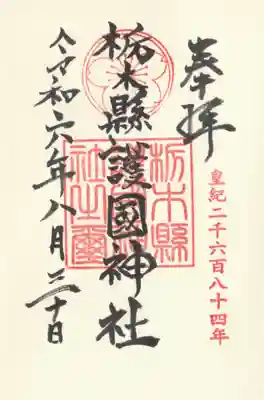 奉拝
皇紀二千六百八十四年
栃木縣護國神社
栃木縣護國神社之璽
令和六年八月三十日